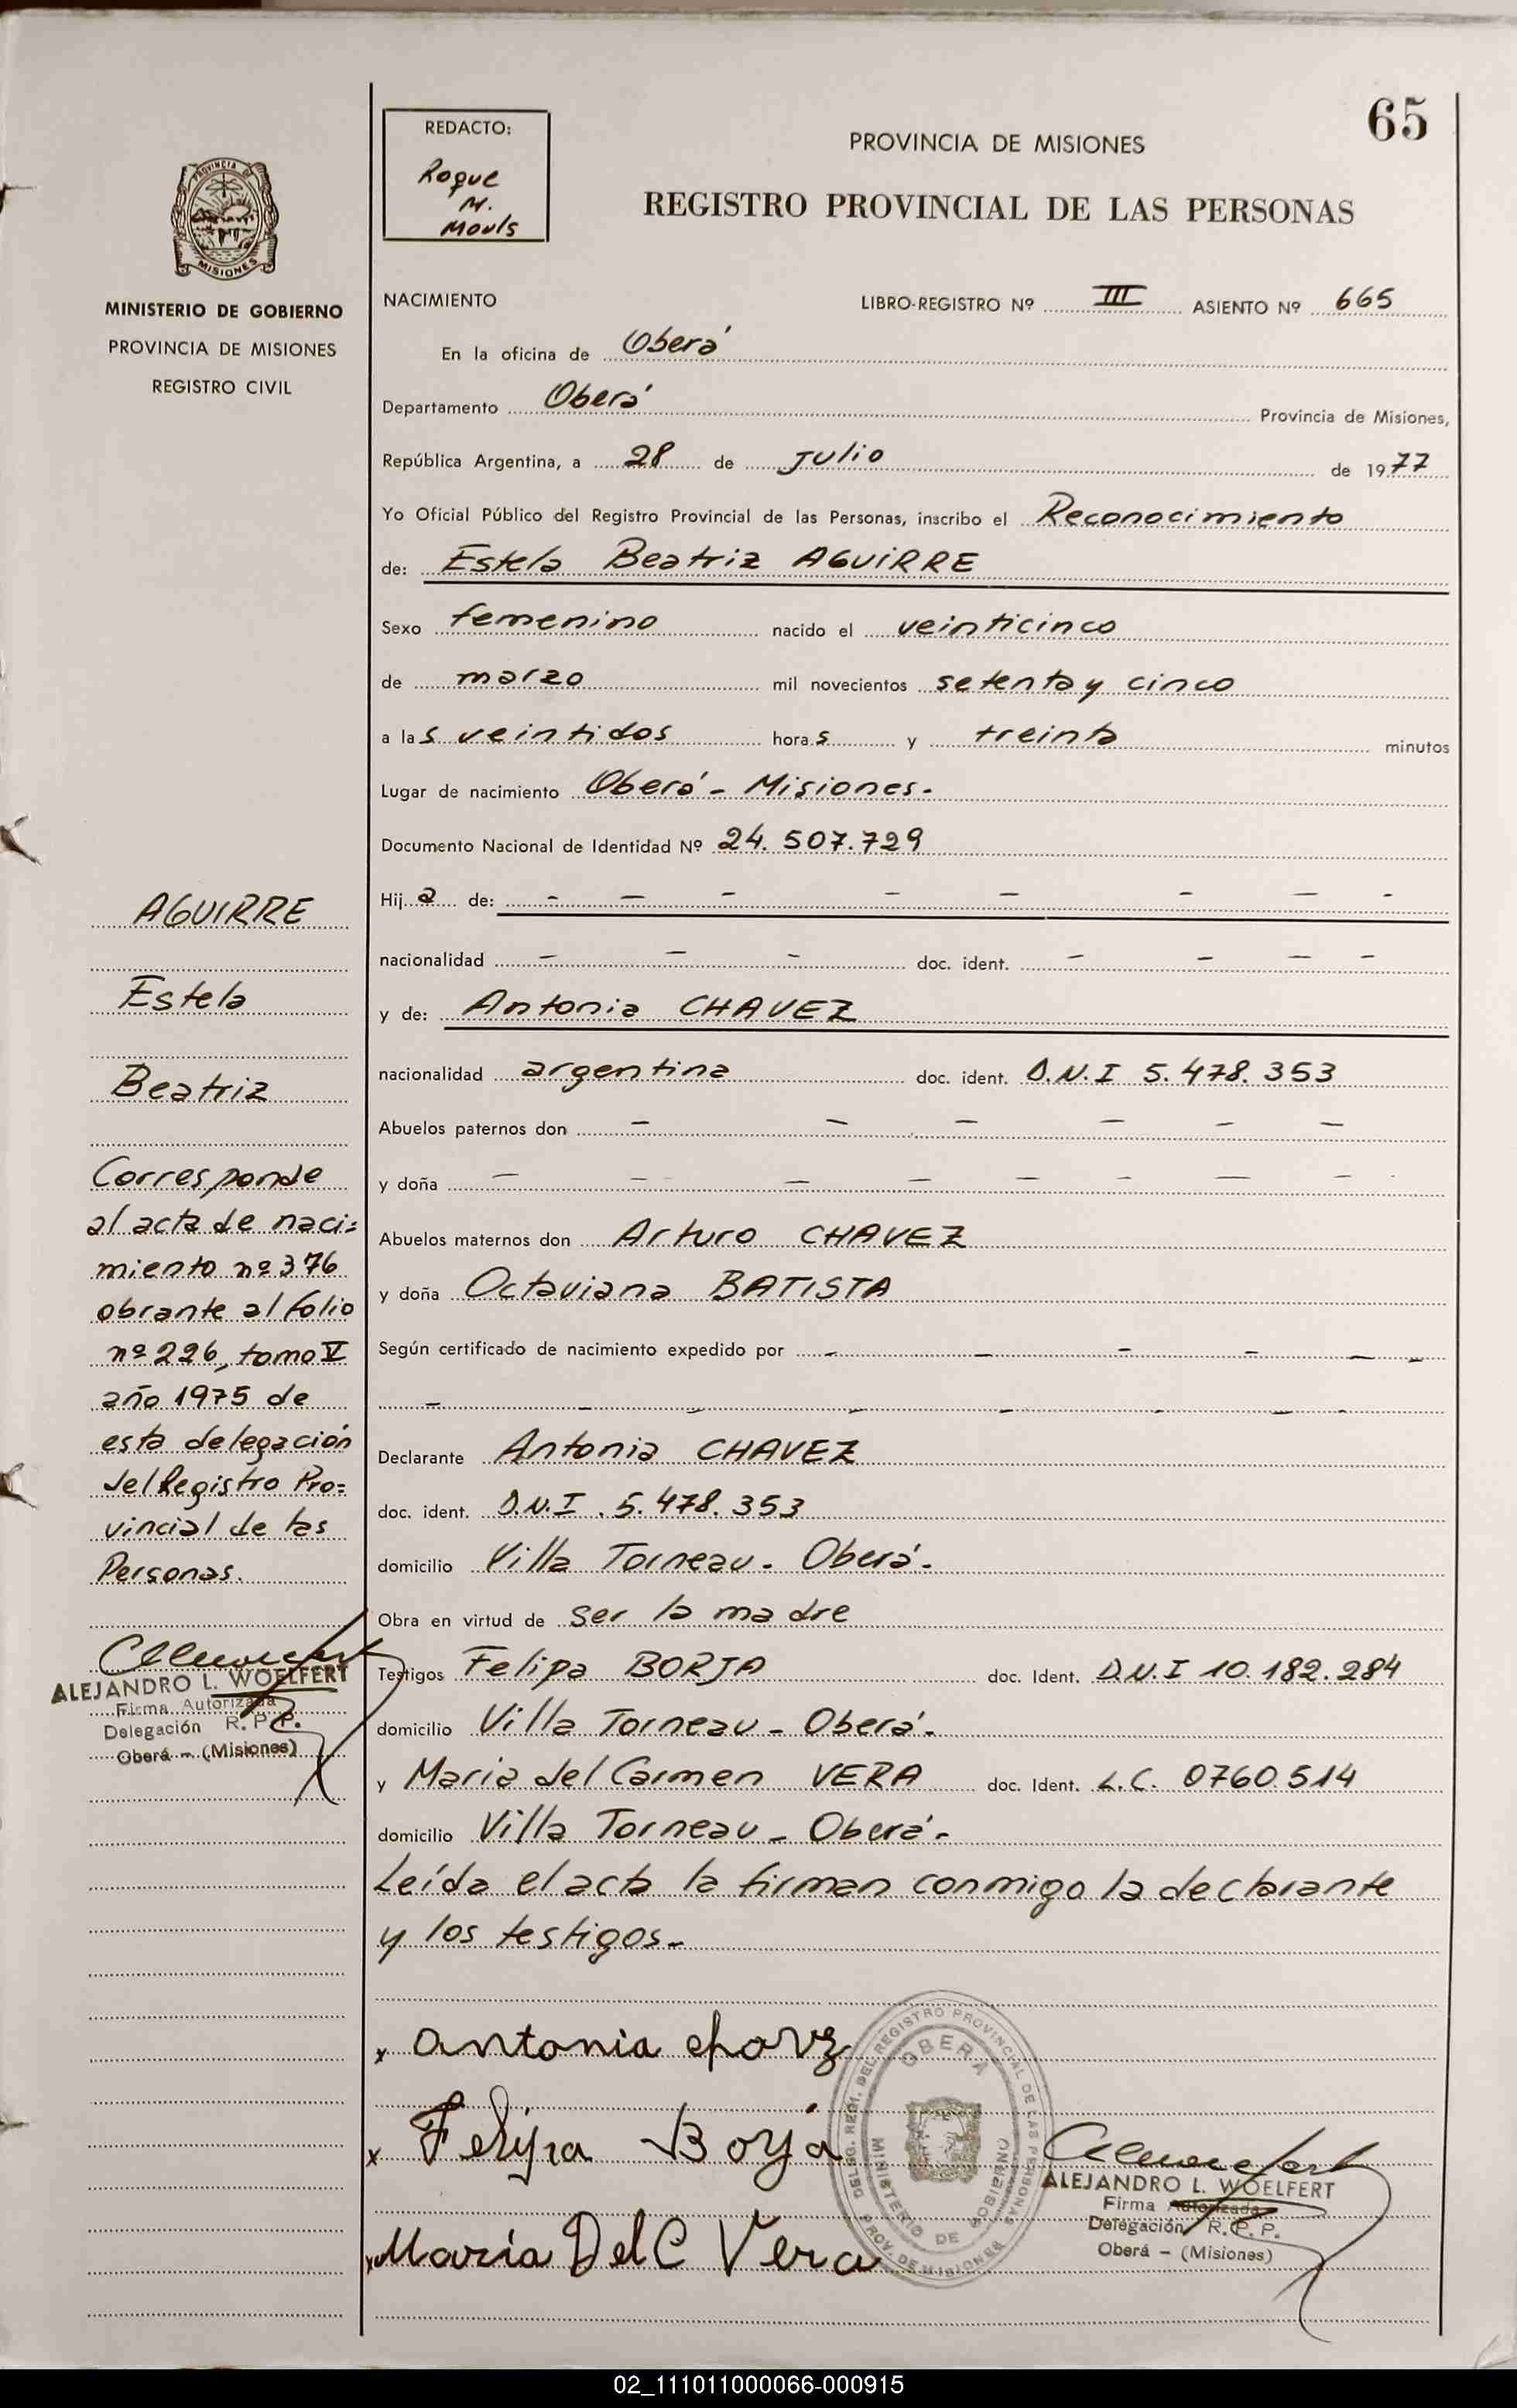 65
REDACTO:
Roque
M.
Mouls
PROVINCIA DE MISIONES
REGISTRO PROVINCIAL DE LAS PERSONAS
PROVINCIA DE
MISIONES
MINISTERIO DE GOBIERNO
PROVINCIA DE MISIONES
REGISTRO CIVIL
NACIMIENTO LIBRO-REGISTRO Nº III ASIENTO Nº 665
En la oficina de Oberá
Departamento Oberá Provincia de Misiones,
República Argentina, a 28 de Julio de 1977
Yo Oficial Público del Registro Provincial de las Personas, inscribo el Reconocimiento
de: Estela Beatriz AGUIRRE
Sexo femenino nacido el veinticinco
de marzo mil novecientos setenta y cinco
a las veintidos horas y treinta minutos
Lugar de nacimiento Oberá - Misiones.
Documento Nacional de Identidad Nº 24.507.729
Hija de: - - - - - - - -
nacionalidad - - - doc. ident. - - - -
y de: Antonia CHAVEZ
nacionalidad argentina doc. ident. D.N.I 5.478.353
Abuelos paternos don - - - - - -
y doña - - - - - - - -
Abuelos maternos don Arturo CHAVEZ
y doña Octaviana BATISTA
Según certificado de nacimiento expedido por - - - - - -
- - - - - - - -
Declarante Antonia CHAVEZ
doc. ident. D.N.I. 5.478.353
domicilio Villa Torneau - Oberá.
Obra en virtud de ser la madre
Testigos Felipa BORJA doc. Ident. D.N.I 10.182.284
domicilio Villa Torneau - Oberá.
y Maria del Carmen VERA doc. Ident. L.C. 0760.514
domicilio Villa Torneau - Oberá.
Leída el acta la firman conmigo la declarante
y los testigos.
AGUIRRE
Estela
Beatriz
Corresponde
al acta de naci=
miento nº 376
obrante al folio
nº 226, tomo V
año 1975 de
esta delegación
del Registro Pro=
vincial de las
Personas.
ALEJANDRO L. WOELFERT
Firma Autorizada
Delegación R. P. P.
Oberá - (Misiones)
x Antonia chavz
x Felipa Borja
x Maria Del C Vera
DELEG. REGI. DEL REGISTRO PROVINCIAL DE LAS PERSONAS
OBERA
MINISTERIO DE GOBIERNO
PROV. DE MISIONES
ALEJANDRO L. WOELFERT
Firma Autorizada
Delegación R. P. P.
Oberá - (Misiones)
02_111011000066-000915